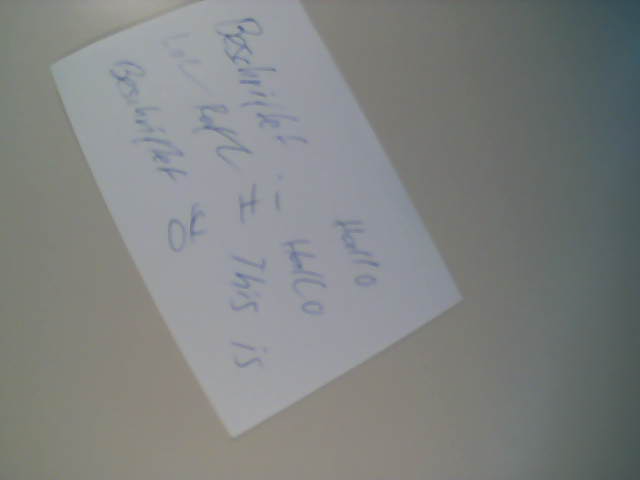 Hallo
Beschriftet :- Hallo
Lol Rofl I This is
Beschriftet